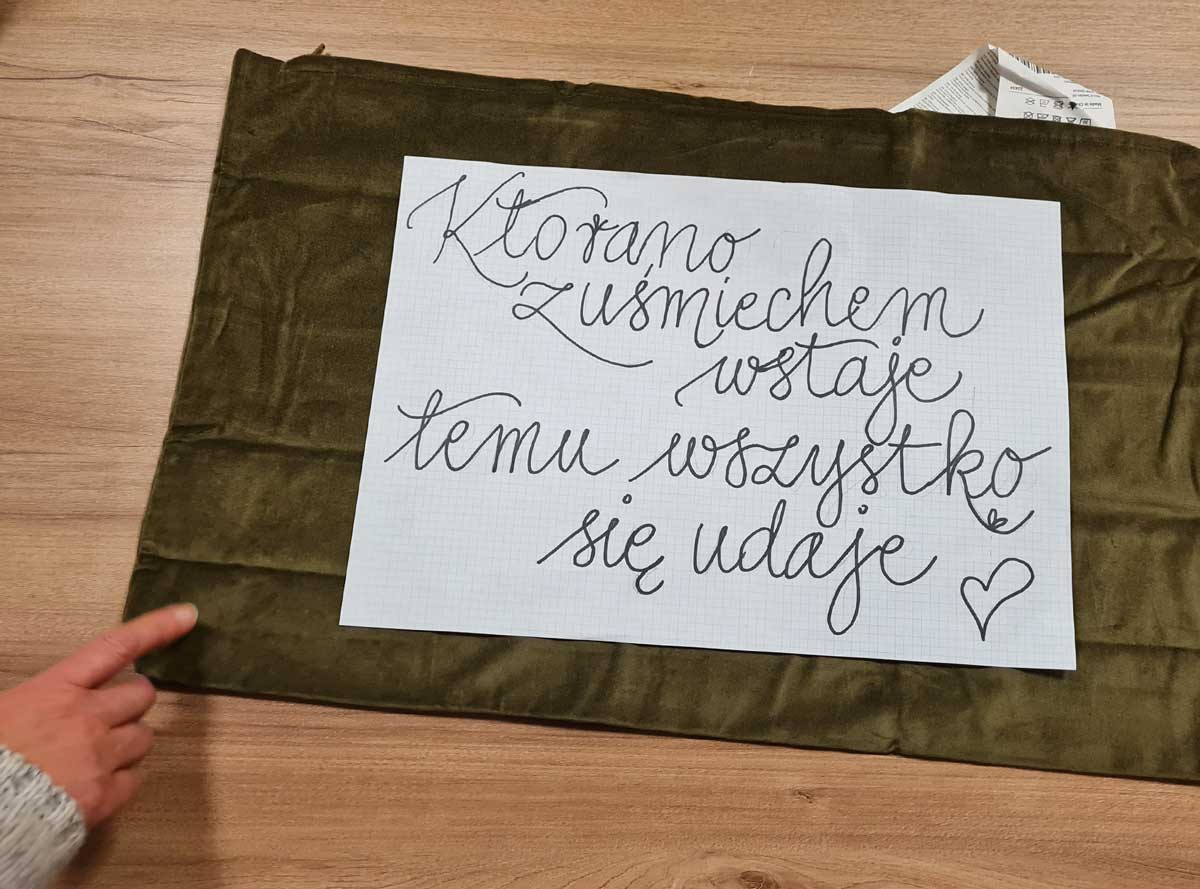 Kto rano
z uśmiechem
wstaje
temu wszystko
się udaje